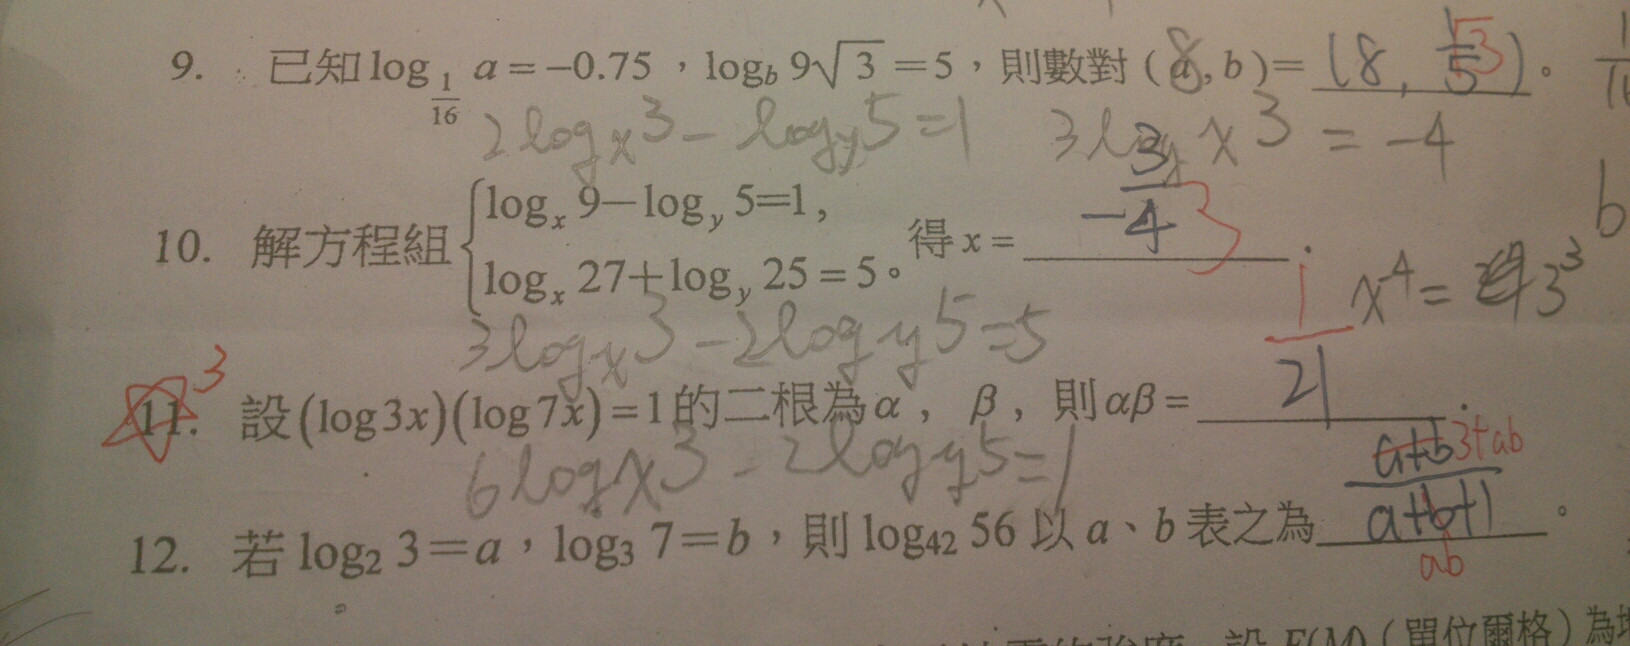 9. 已知 log_{1/16} a = −0.75，log_b 9√3 = 5，則數對 (a, b) = (8, 1/5) √3。
2log_x 3 − log_y 5 = 1    3log_y x 3 = −4
10. 解方程組 { log_x 9 − log_y 5 = 1, log_x 27 + log_y 25 = 5。 得 x = −3/4 3
x^4 = 3^3
3log_x 3 − 2log y 5 = 5
11. 設 (log 3x)(log 7x) = 1 的二根為 α， β，則 αβ = 1/21 .
3
6log x 3 − 2log y 5 = 1
12. 若 log₂ 3 = a，log₃ 7 = b，則 log₄₂ 56 以 a、b 表之為 (a+b)/(a+b+1)。
3+ab
ab
設 F(M) (單位爾格) 為